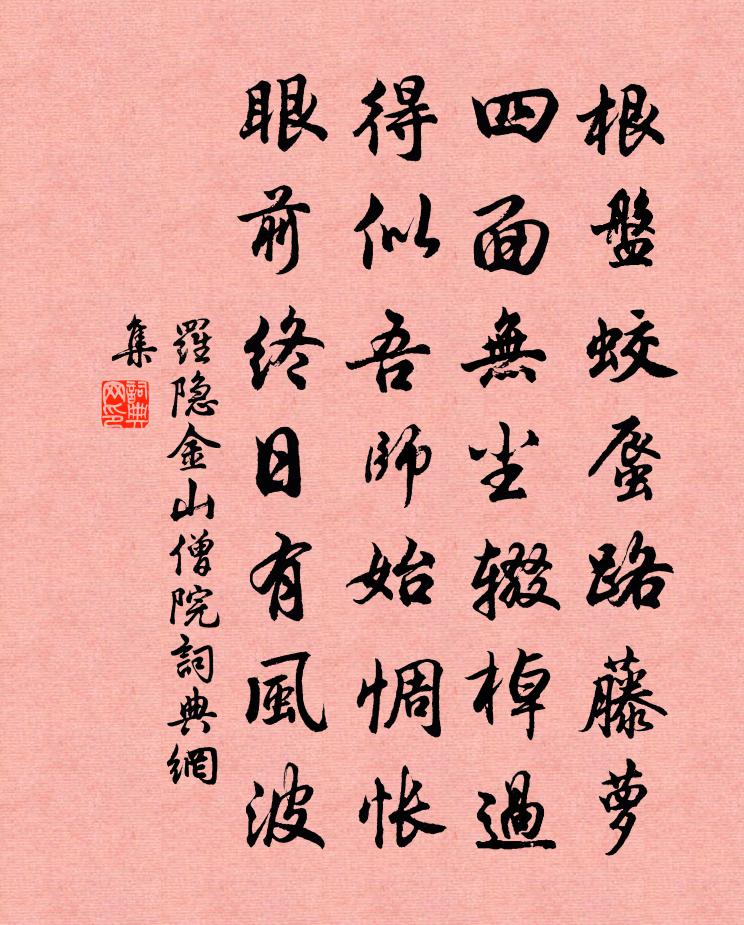 根盤蛟蜃路藤萝
四面無尘辍棹過
得似吾師始惆怅
眼前終日有風波
羅隐金山僧院詞典網
集
詞典網印